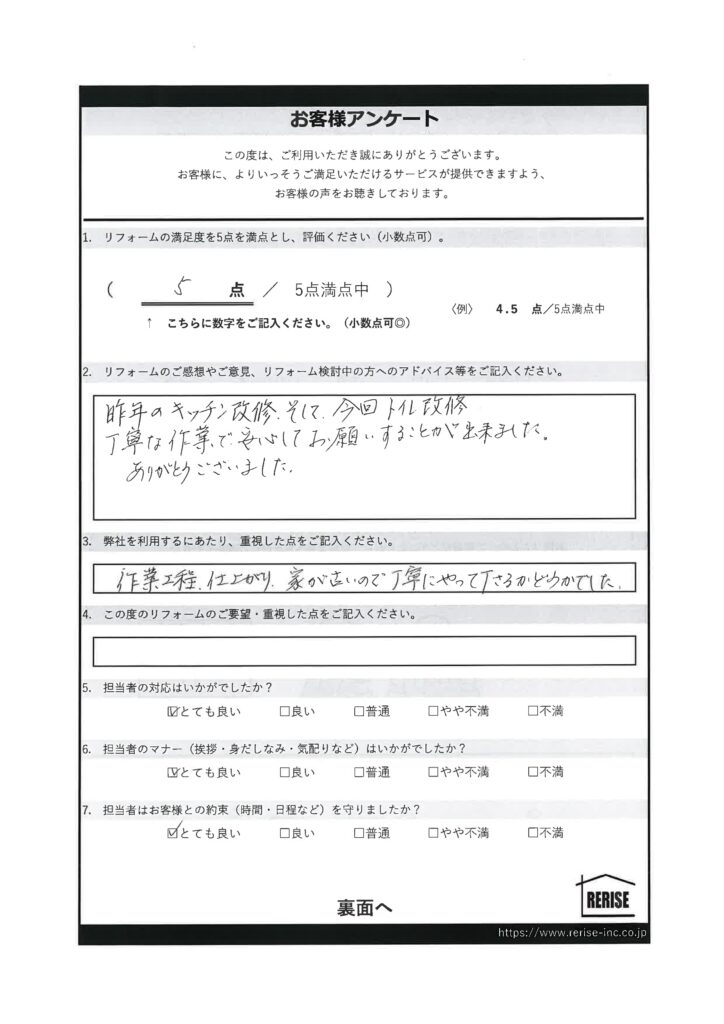 お客様アンケート
この度は、ご利用いただき誠にありがとうございます。
お客様に、よりいっそうご満足いただけるサービスが提供できますよう、
お客様の声をお聴きしております。
1. リフォームの満足度を5点を満点とし、評価ください（小数点可）。
（ 5 点 ／ 5点満点中 ）
〈例〉 4.5 点／5点満点中
↑ こちらに数字をご記入ください。（小数点可◎）
2. リフォームのご感想やご意見、リフォーム検討中の方へのアドバイス等をご記入ください。
昨年のキッチン改修、そして、今回トイレ改修
丁寧な作業で安心してお願いすることが出来ました。
ありがとうございました。
3. 弊社を利用するにあたり、重視した点をご記入ください。
作業工程、仕上がり、家が古いので丁寧にやって下さるかどうかでした。
4. この度のリフォームのご要望・重視した点をご記入ください。
5. 担当者の対応はいかがでしたか？
☑とても良い □良い □普通 □やや不満 □不満
6. 担当者のマナー（挨拶・身だしなみ・気配りなど）はいかがでしたか？
☑とても良い □良い □普通 □やや不満 □不満
7. 担当者はお客様との約束（時間・日程など）を守りましたか？
☑とても良い □良い □普通 □やや不満 □不満
裏面へ
RERISE
https://www.rerise-inc.co.jp